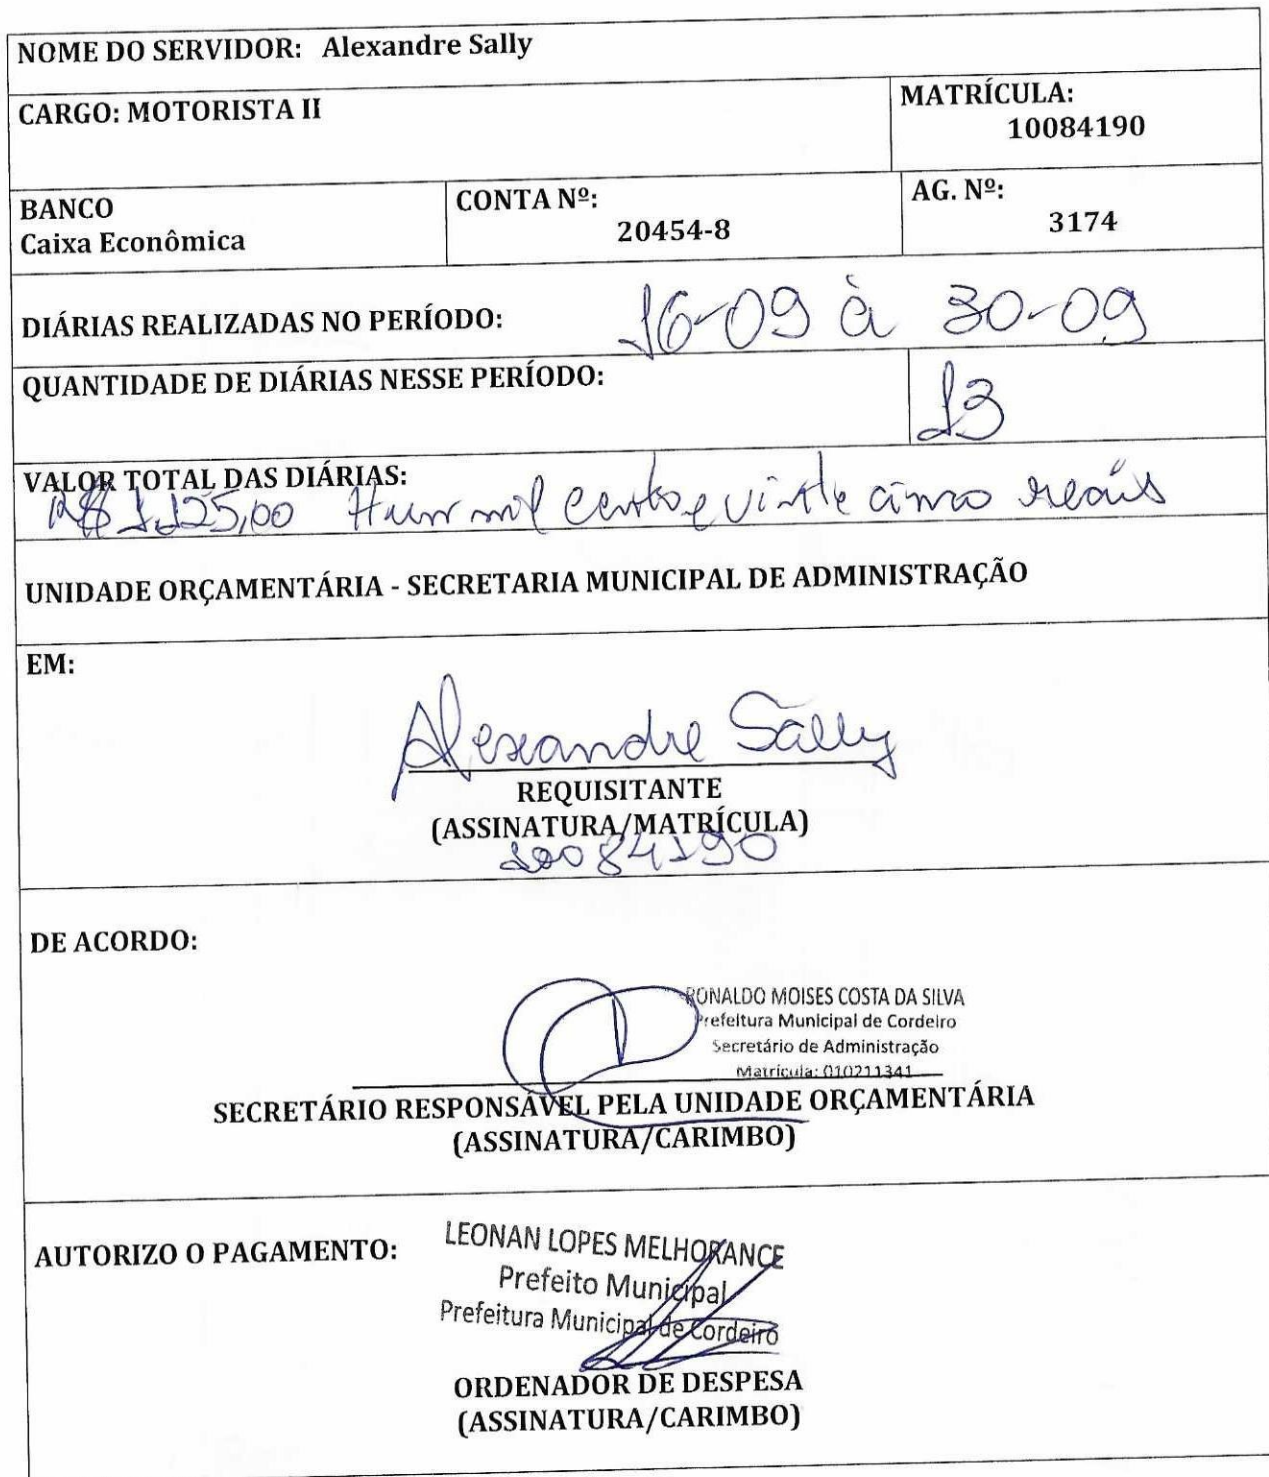 NOME DO SERVIDOR: Alexandre Sally
CARGO: MOTORISTA II
MATRÍCULA:
10084190
BANCO
Caixa Econômica
CONTA Nº:
20454-8
AG. Nº:
3174
DIÁRIAS REALIZADAS NO PERÍODO: 16-09 à 30-09
QUANTIDADE DE DIÁRIAS NESSE PERÍODO: 13
VALOR TOTAL DAS DIÁRIAS:
R$ 1.125,00 Hum mil cento e vinte cinco reais
UNIDADE ORÇAMENTÁRIA - SECRETARIA MUNICIPAL DE ADMINISTRAÇÃO
EM:
Alexandre Sally
REQUISITANTE
(ASSINATURA/MATRÍCULA)
10084190
DE ACORDO:
RONALDO MOISES COSTA DA SILVA
Prefeitura Municipal de Cordeiro
Secretário de Administração
Matrícula: 010211341
SECRETÁRIO RESPONSÁVEL PELA UNIDADE ORÇAMENTÁRIA
(ASSINATURA/CARIMBO)
AUTORIZO O PAGAMENTO:
LEONAN LOPES MELHORANCE
Prefeito Municipal
Prefeitura Municipal de Cordeiro
ORDENADOR DE DESPESA
(ASSINATURA/CARIMBO)